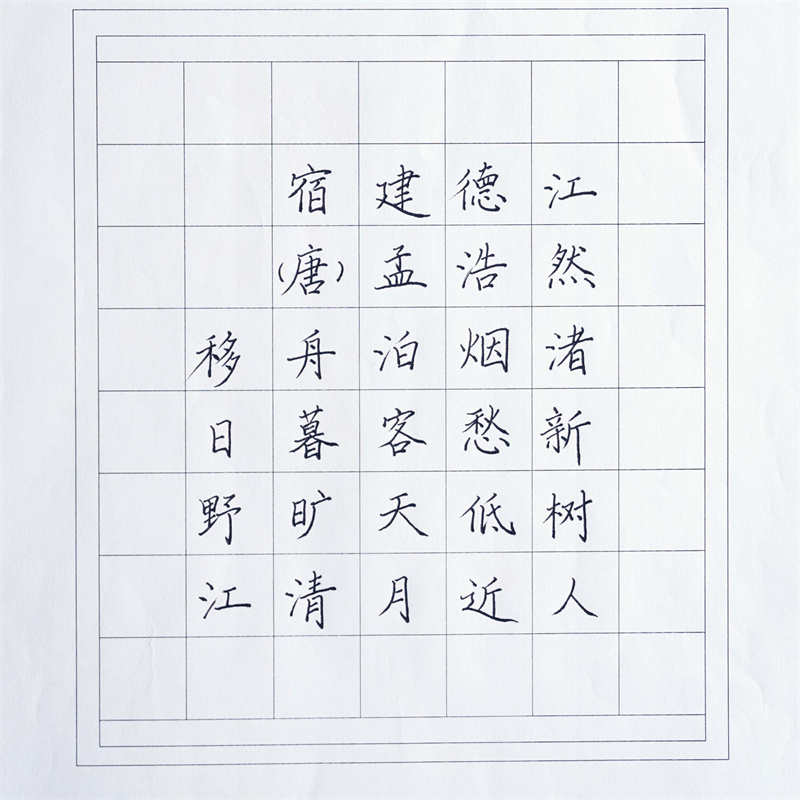 宿建德江
(唐)孟浩然
移舟泊烟渚
日暮客愁新
野旷天低树
江清月近人